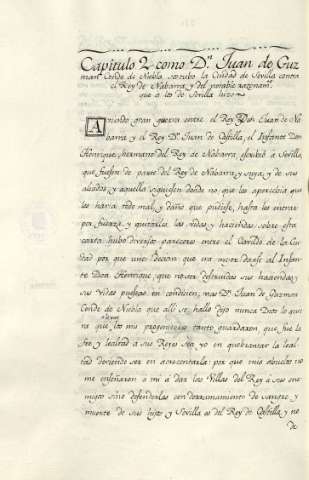 Capitulo 2 como D.n Juan de Guz
man Conde de Niebla, sostubo la Ciudad de Sevilla contra
el Rey de Nabarra, y del notable razonam.to
que a los de Sevilla hizo
Aviendo gran guerra entre el Rey Don Juan de Na
barra y el Rey D.n Juan de Castilla, el Infante Don
Henrique, hermano del Rey de Nabarra, escribió a Sevilla
que fuesen de parte del Rey de Nabarra, y suya, y de sus
aliados, y aquella siguiesen donde no que les apercibia que
les haria todo mal, y daño que pudiese, hasta les entrar
por fuerza, y quitarles las vidas, y haciendas, sobre esta
carta hubo diversos pareceres entre el Cavildo de la Ciu
dad por que unos decian que era mejor darse al Infan
te Don Henrique, que no ver destruidas sus haciendas, y
sus vidas puestas en condicion, mas D.n Juan de Guzman
Conde de Niebla que alli se hallo dijo nunca Dios lo quie
ra que lo que mis progenitores tanto guardaron, que fue la
fee y lealtad a sus Reyes sea yo en quebrantar la leal
tad deviendo ser en acrecentarla: por que mis abuelos no
me enseñaron a mi a dar las Villas del Rey a sus ene
migos sino defenderlas con derramamiento de sangre, y
muerte de sus hijos y Sevilla es del Rey de Castilla y no
de